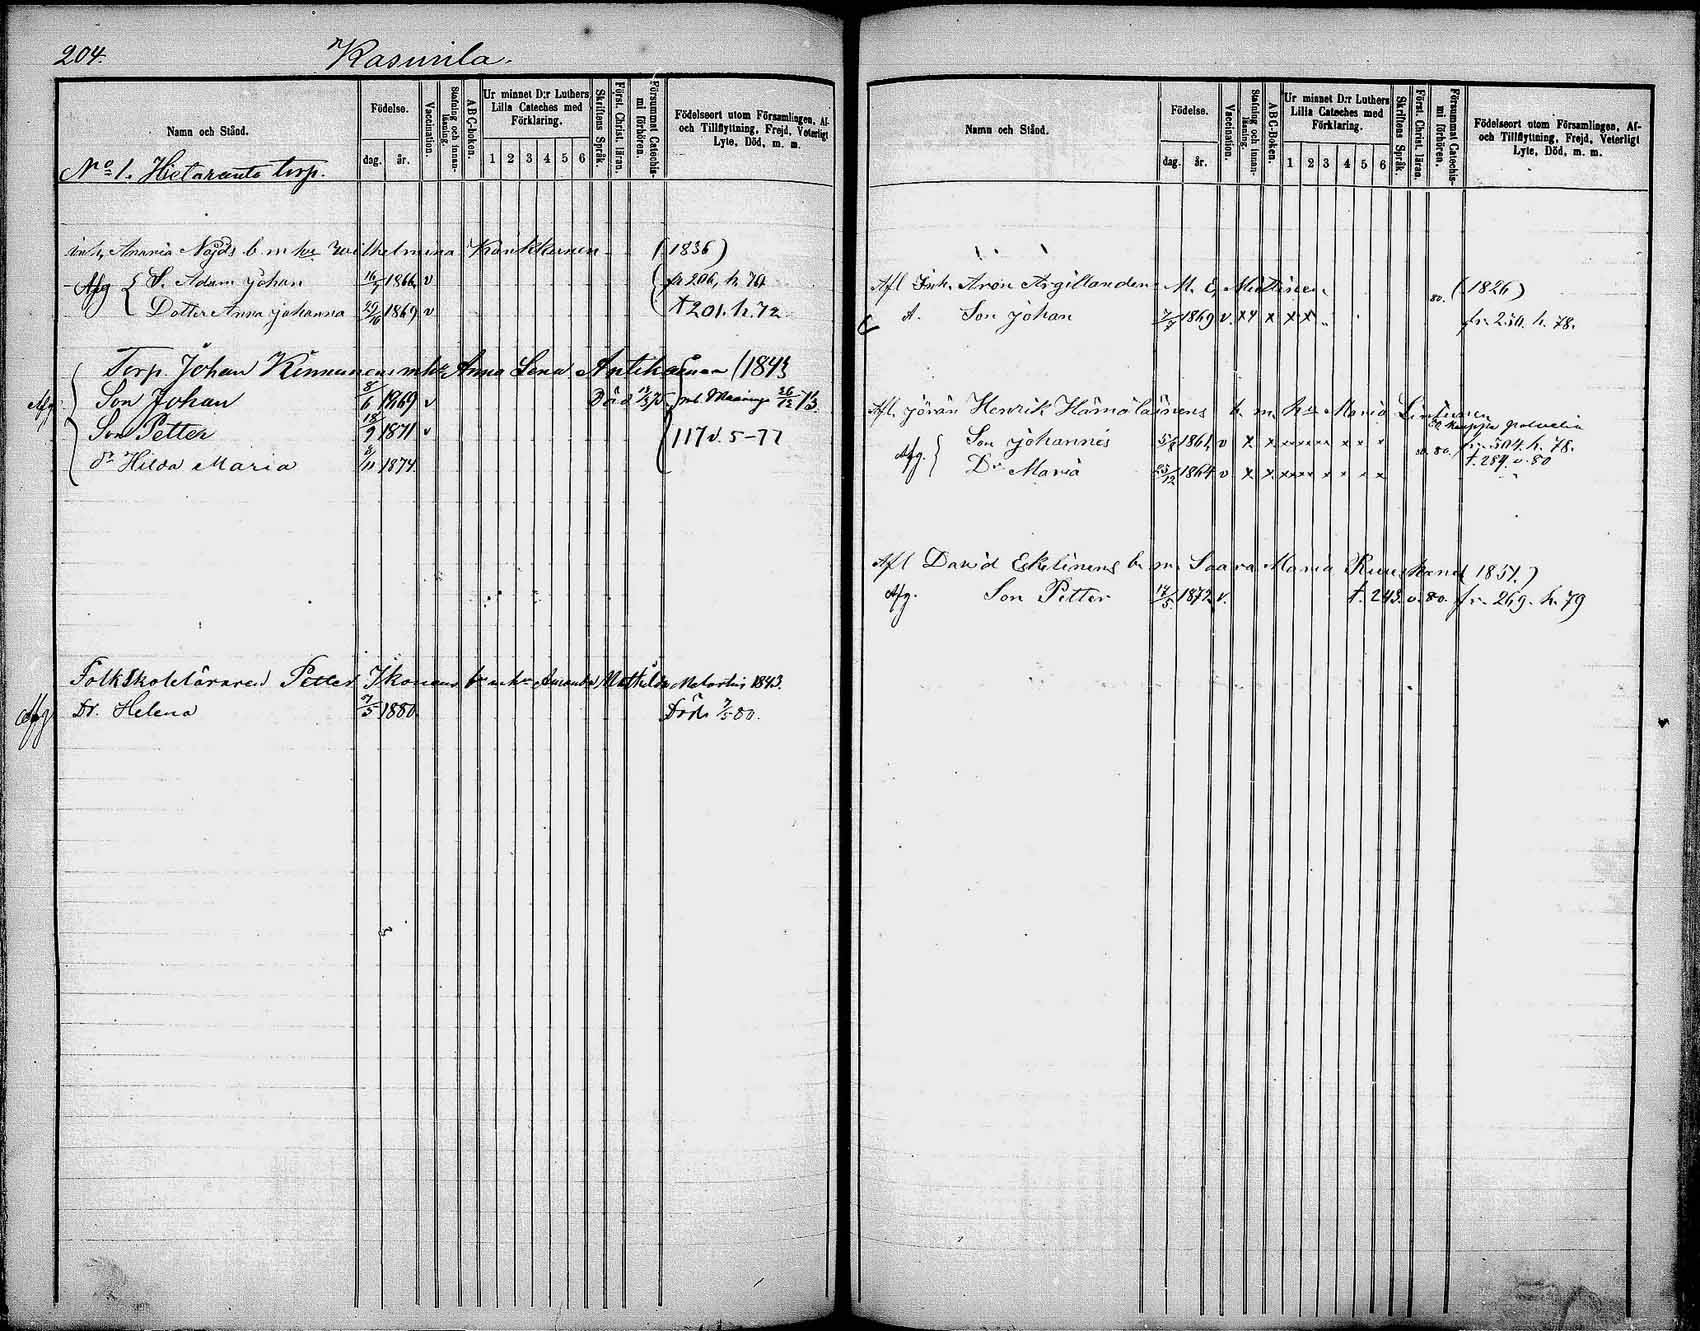 204.
Kasurila.
Namn och Stånd.
Födelse.
dag.
år.
Vaccination.
Stafning och innan-läsning.
ABC-boken.
Ur minnet D:r Luthers Lilla Cateches med Förklaring.
1 2 3 4 5 6
Skriftens Språk.
Först. Christ. läran.
Försummat Catechis-mi förhören.
Födelseort utom Församlingen, Af- och Tillflyttning, Frejd, Veterligt Lyte, Död, m. m.
No 1. Hietaranta torp.
Inh. Anania Nöjds b. m. hu Wilhelmina Kankkunen (1836)
Afg S. Adam Johan 16/7 1866 v fr 206, h. 70
Dotter Anna Johanna 29/10 1869 v t 201. h. 72
Torp. Johan Kinnunens m hu Anna Lena Antikainen (1843
Afg. Son Johan 8/6 1869 v Död
Son Petter 18/9 1871 v 117 v. 5-77
Dr Hilda Maria 1874.
Folkskoleläraren Petter Ikonens b. m hu Amanda Mathilda 1843.
Afg Dr. Helena 1880 Död 80.
Namn och Stånd.
Födelse.
dag.
år.
Vaccination.
Stafning och innan-läsning.
ABC-Boken.
Ur minnet D:r Luthers Lilla Cateches med Förklaring.
1 2 3 4 5 6
Skriftens Språk.
Först. Christ. läran.
Försummat Catechis-mi förhören.
Födelseort utom Församlingen, Af- och Tillflyttning, Frejd, Veterligt Lyte, Död, m. m.
Afl Inh. Aron Argillander M. E. Miettinen (1826)
A. Son Johan 7/7 1869 v. x x x x x 80. fr. 250. h. 78.
Afl. Jöran Henrik Hämäläinens b. m. hu Maria Lintunen
Afg. Son Johannes 1861 v x x x x x x x x 80. fr. 504. h. 78.
Dr Maria 25/12 1864 v x x x x x x x x t. 284. v. 80
Afl David Eskelinens b m. Saara Maria Ruuskanen 1851.)
Afg. Son Petter 14/5 1872 v. t. 243. v. 80. fr. 269. h. 79